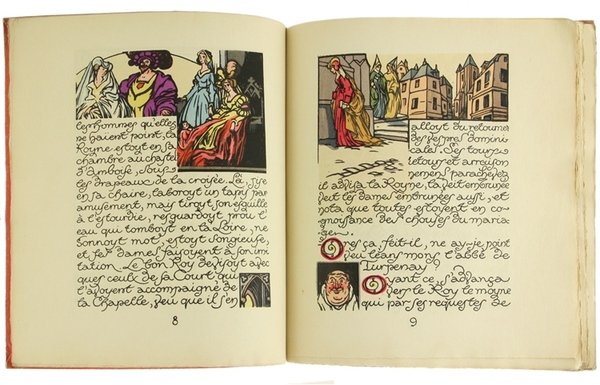 les hommes qu'elles
ne haient point, la
Royne estoyt en sa
chambre au chasteau
d'Amboyse, soubs
les drapeaux de la croisée. Là, sise
en sa chaire, labouroyt ung tapis par
amusement, may tiroyt son esguille
à l'estourdie, resguardoyt prou l'
eau qui tomboyt en la Loire, ne
sonnoyt mot, estoyt songieuse,
et ses dames faisoyent à son imi
tation. Le bon Roy devisoyt avec
ques ceulx de sa Court qui
l'avoyent accompaigné de
la Chapelle, veu que il s'en
8
alloyt du retourner
des vespres domini
cales. Ses tours,
retours et arraison
nemens paracheves,
il advisa la Royne, la veit embrunée,
veit les dames embrunées aussi, et
nota que toutes estoyent en co
gnoissance des chouses du maria
ge.
Ores ça, feit-il, ne ay-je point
veu léans mons l'abbé de
Turpenay?
Oyant ce s'advança
vers le Roy le moyne
qui par ses requestes de
9